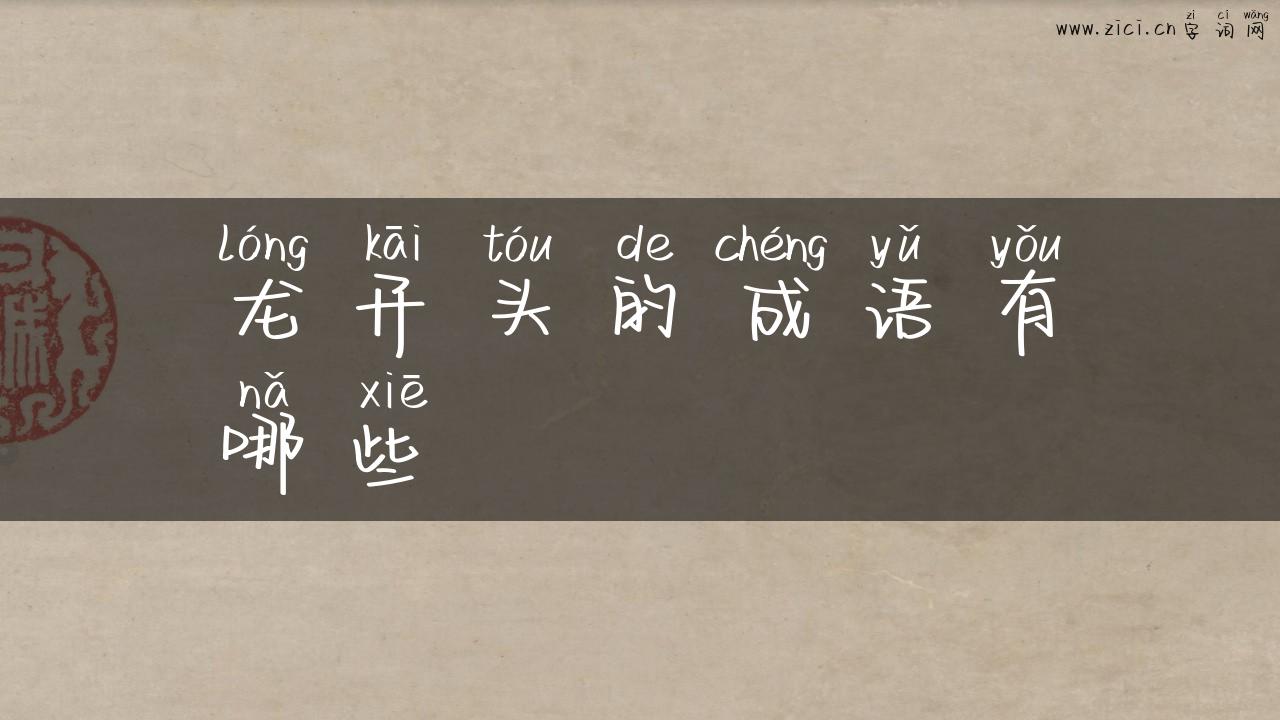 zì cí wǎng
www.zici.cn 字词网
lóng kāi tóu de chéng yǔ yǒu
龙开头的成语有
nǎ xiē
哪些